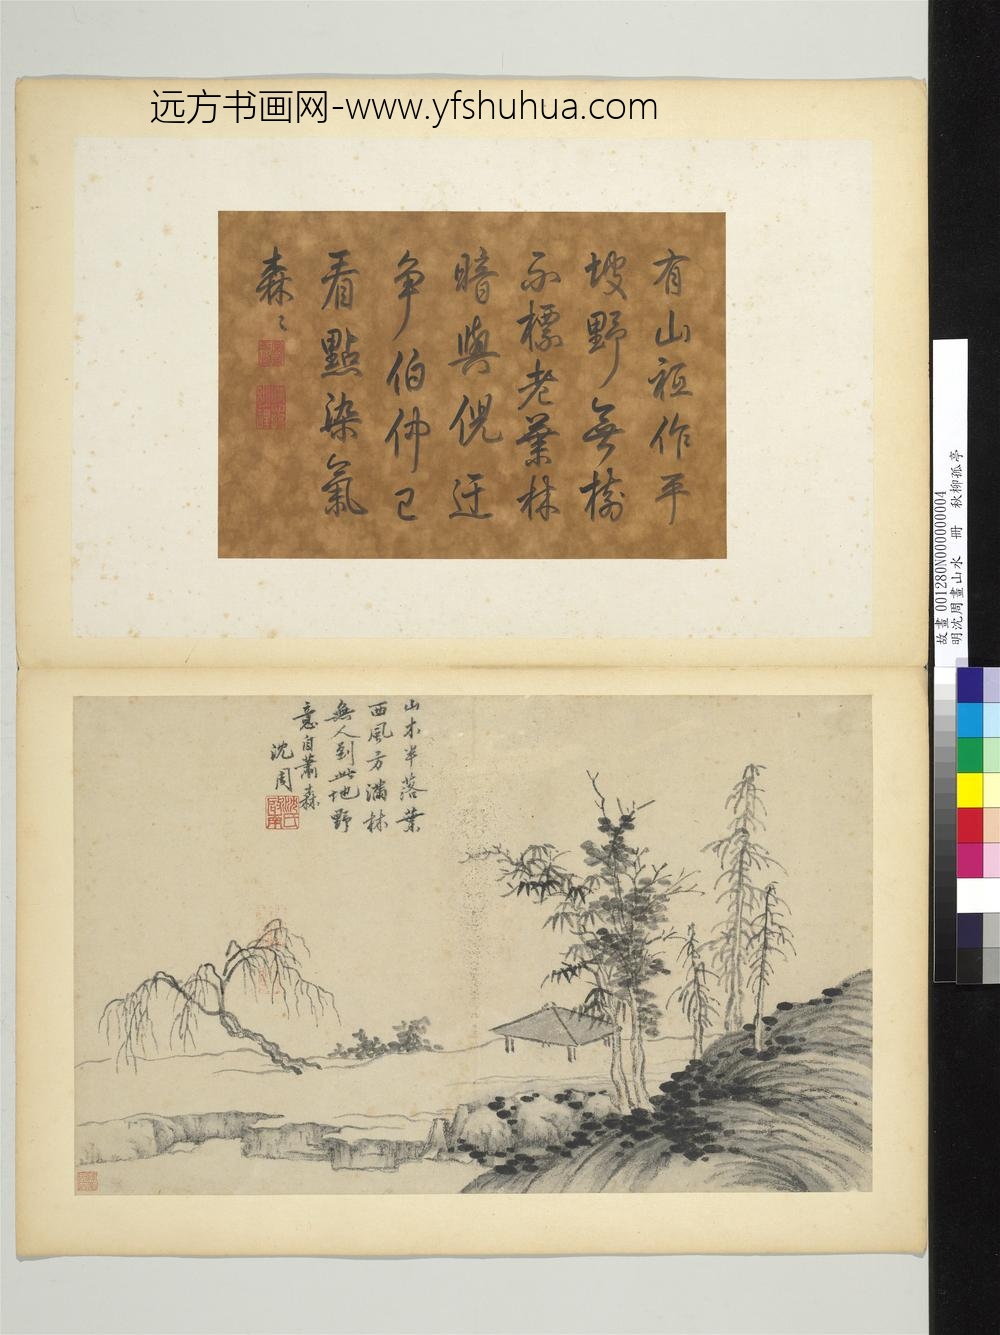 远方书画网-www.yfshuhua.com
有山祗作平
坡野無樹
不標老葉林
暗與倪迂
争伯仲已
看點染氣
森〻
山木半落葉
西風方滿林
無人到此地野
意自蕭森
沈周
故畫001280N000000004
明沈周畫山水　冊　秋柳孤亭